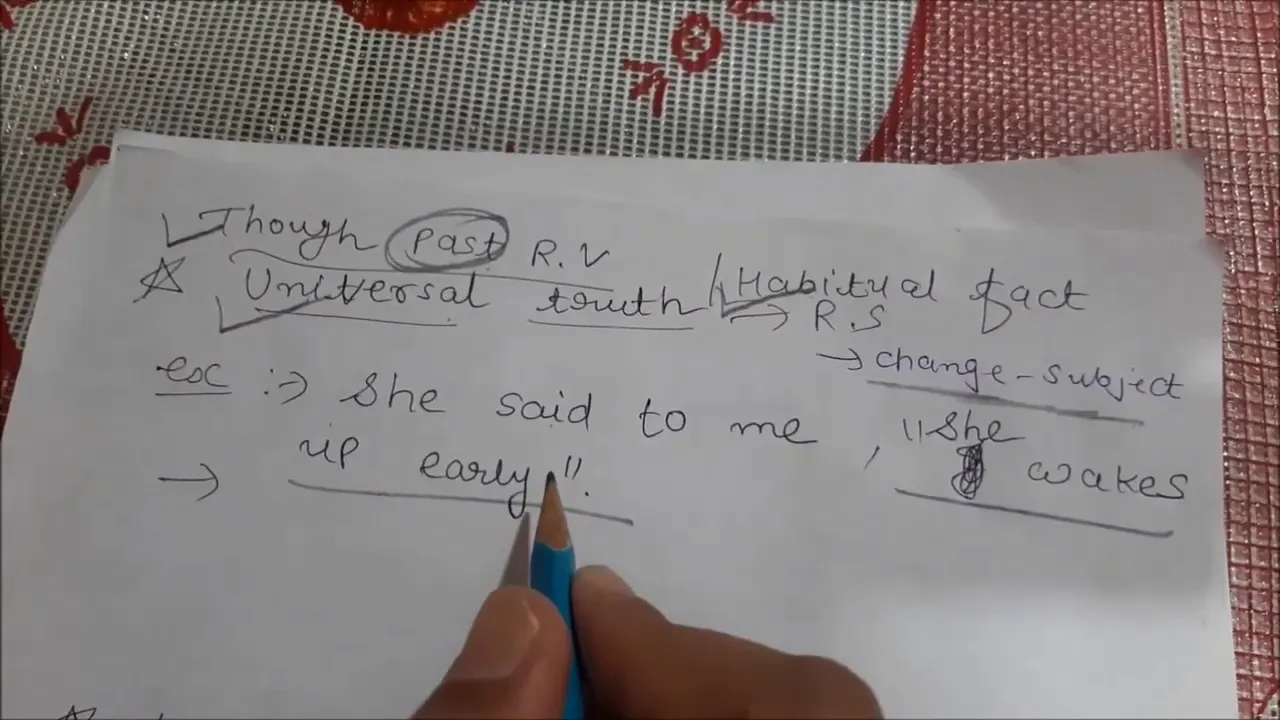 Though Past R.V
☆ Universal truth / Habitual fact
→ R.S
→ change-subject
ex :→ She said to me, "She wakes
→ up early".